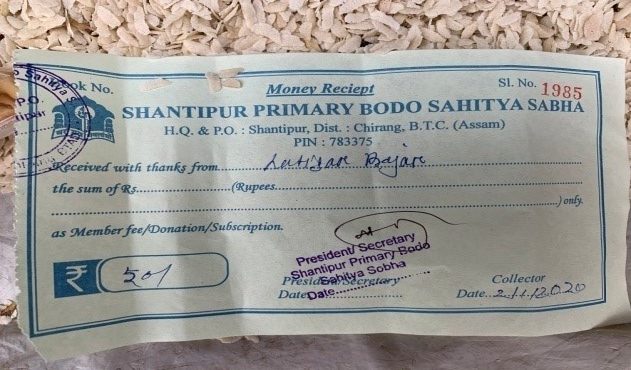 Book No.
Money Reciept
Sl. No. 1985
SHANTIPUR PRIMARY BODO SAHITYA SABHA
H.Q. & P.O. : Shantipur, Dist. : Chirang, B.T.C. (Assam)
PIN : 783375
Received with thanks from
the sum of Rs. (Rupees
) only.
as Member fee/Donation/Subscription.
President/ Secretary
Shantipur Primary Bodo
Sahitya Sobha
Date
₹ 50/
President/Secretary
Date
Collector
Date